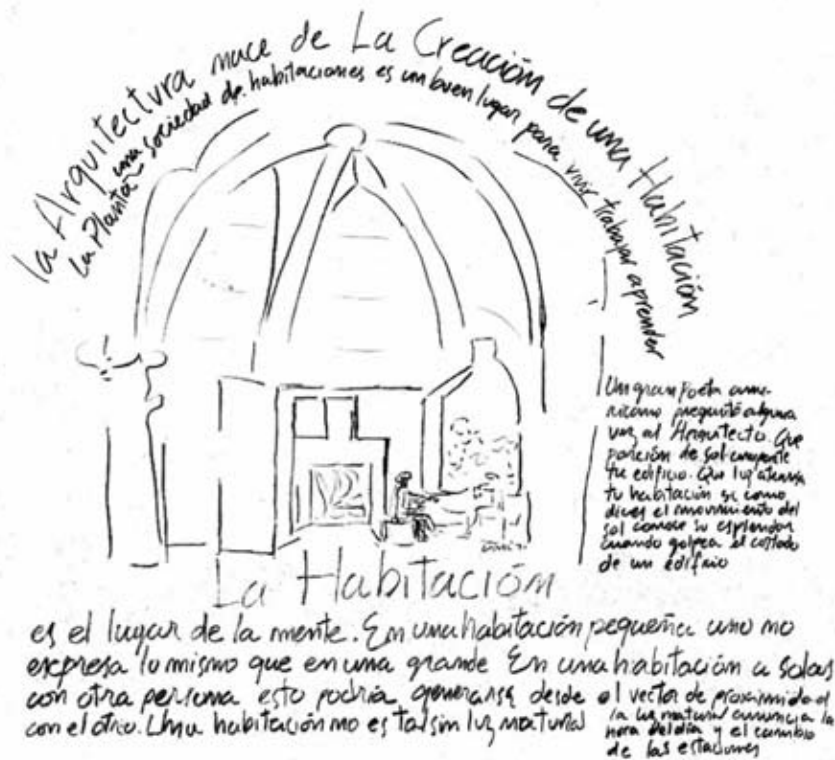 la Arquitectura nace de La Creación de una Habitación
la Planta una sociedad de habitaciones es un buen lugar para vivir trabajar aprender
Un gran Poeta ame-
ricano preguntó alguna
vez al Arquitecto. Que
porción de sol comparte
tu edificio. Que luz atraviesa
tu habitación si como
dices el movimiento del
sol conoce su esplendor
cuando golpea el costado
de un edificio
La Habitación
es el lugar de la mente. En una habitación pequeña uno no
expresa lo mismo que en una grande En una habitación a solas
con otra persona esto podría generarse desde el vector de proximidad
con el otro. Una habitación no es tal sin luz natural
la luz natural anuncia la
hora del día y el cambio
de las estaciones